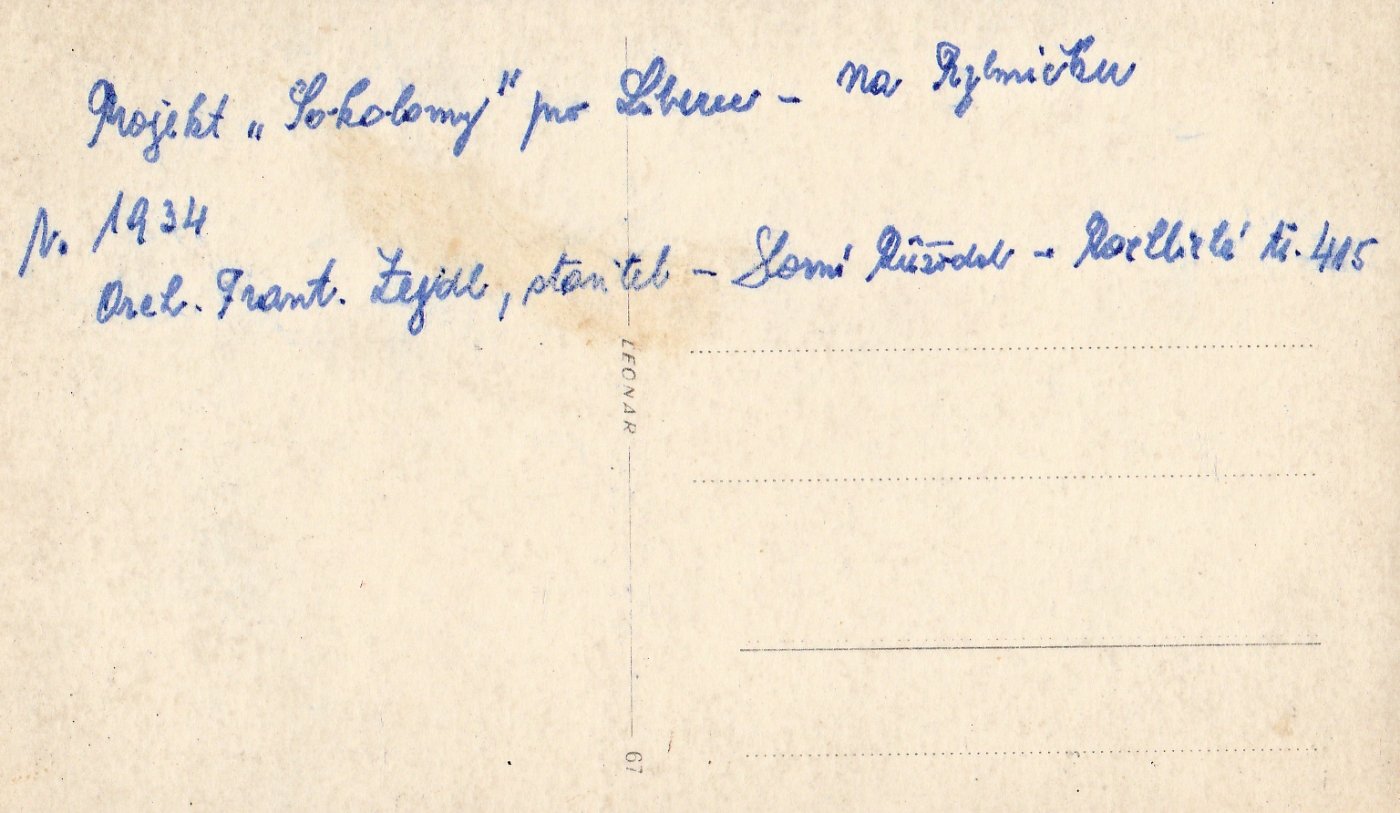 Projekt „Sokolovny" pro Liberec - na Rybníčku
r. 1934
Arch. Frant. Zejdl, stavitel - Horní Růžodol - čs. 415
LEONAR
67